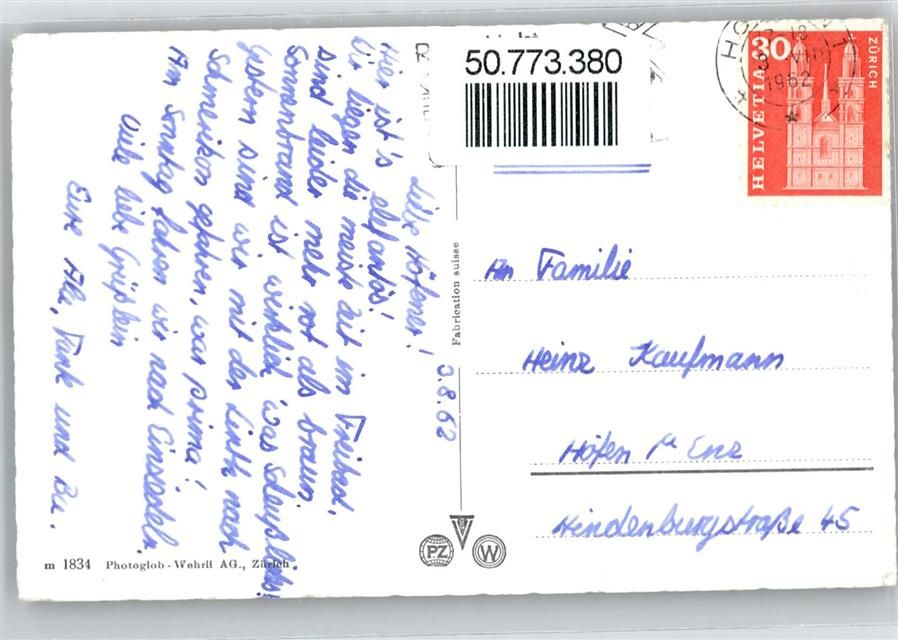 3.8.62
Liebe Höfener!
Hier ist's elefantös!
Wir liegen die meiste Zeit im Freibad,
sind leider mehr rot als braun.
Sonnenbrand ist wirklich was Scheußliches!
Gestern sind wir mit der Linth nach
Schmerikon gefahren, war prima!
Am Sonntag fahren wir nach Einsiedeln.
Viele liebe Grüßlein
Eure
und
m 1834 Photoglob-Wehrli AG., Zürich
Fabrication suisse
PZ
W
50.773.380
HELVETIA
30
ZÜRICH
VIII
1962
An Familie
Heinz Kaufmann
Höfen a Enz
Hindenburgstraße 45